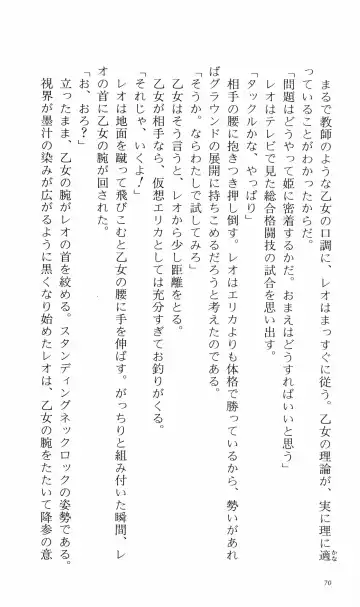 まるで教師のような乙女の口調に、レオはまっすぐに従う。乙女の理論が、実に理に適
かな
っていることがわかったからだ。
「問題はどうやって姫に密着するかだ。おまえはどうすればいいと思う」
レオはテレビで見た総合格闘技の試合を思い出す。
「タックルかな、やっぱり」
相手の腰に抱きつき押し倒す。レオはエリカよりも体格で勝っているから、勢いがあれ
ばグラウンドの展開に持ちこめるだろうと考えたのである。
「そうか。ならわたしで試してみろ」
乙女はそう言うと、レオから少し距離をとる。
乙女が相手なら、仮想エリカとしては充分すぎてお釣りがくる。
「それじゃ、いくよ！」
レオは地面を蹴って飛びこむと乙女の腰に手を伸ばす。がっちりと組み付いた瞬間、レ
オの首に乙女の腕が回された。
「お、おろ？」
立ったまま、乙女の腕がレオの首を絞める。スタンディングネックロックの姿勢である。
視界が墨汁の染みが広がるように黒くなり始めたレオは、乙女の腕をたたいて降参の意
70